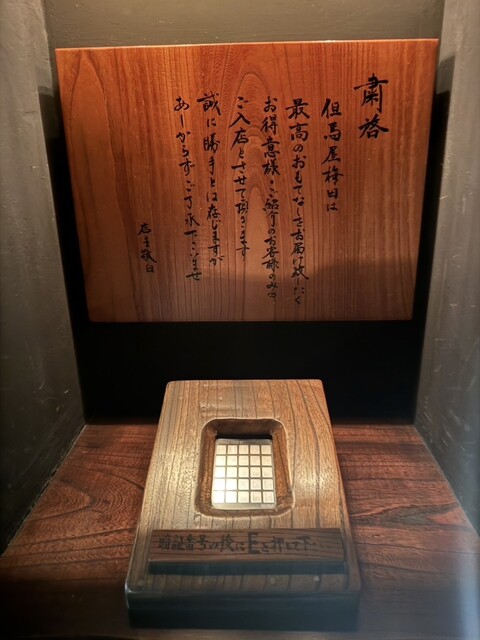 粛啓
但馬屋梅田は
最高のおもてなしをお届け致したく
お得意様、ご紹介のお客様のみの
ご入店とさせて頂きます
誠に勝手とは存じますが
あしからずご了承くださいませ
店主敬白
暗証番号の後にEを押して下